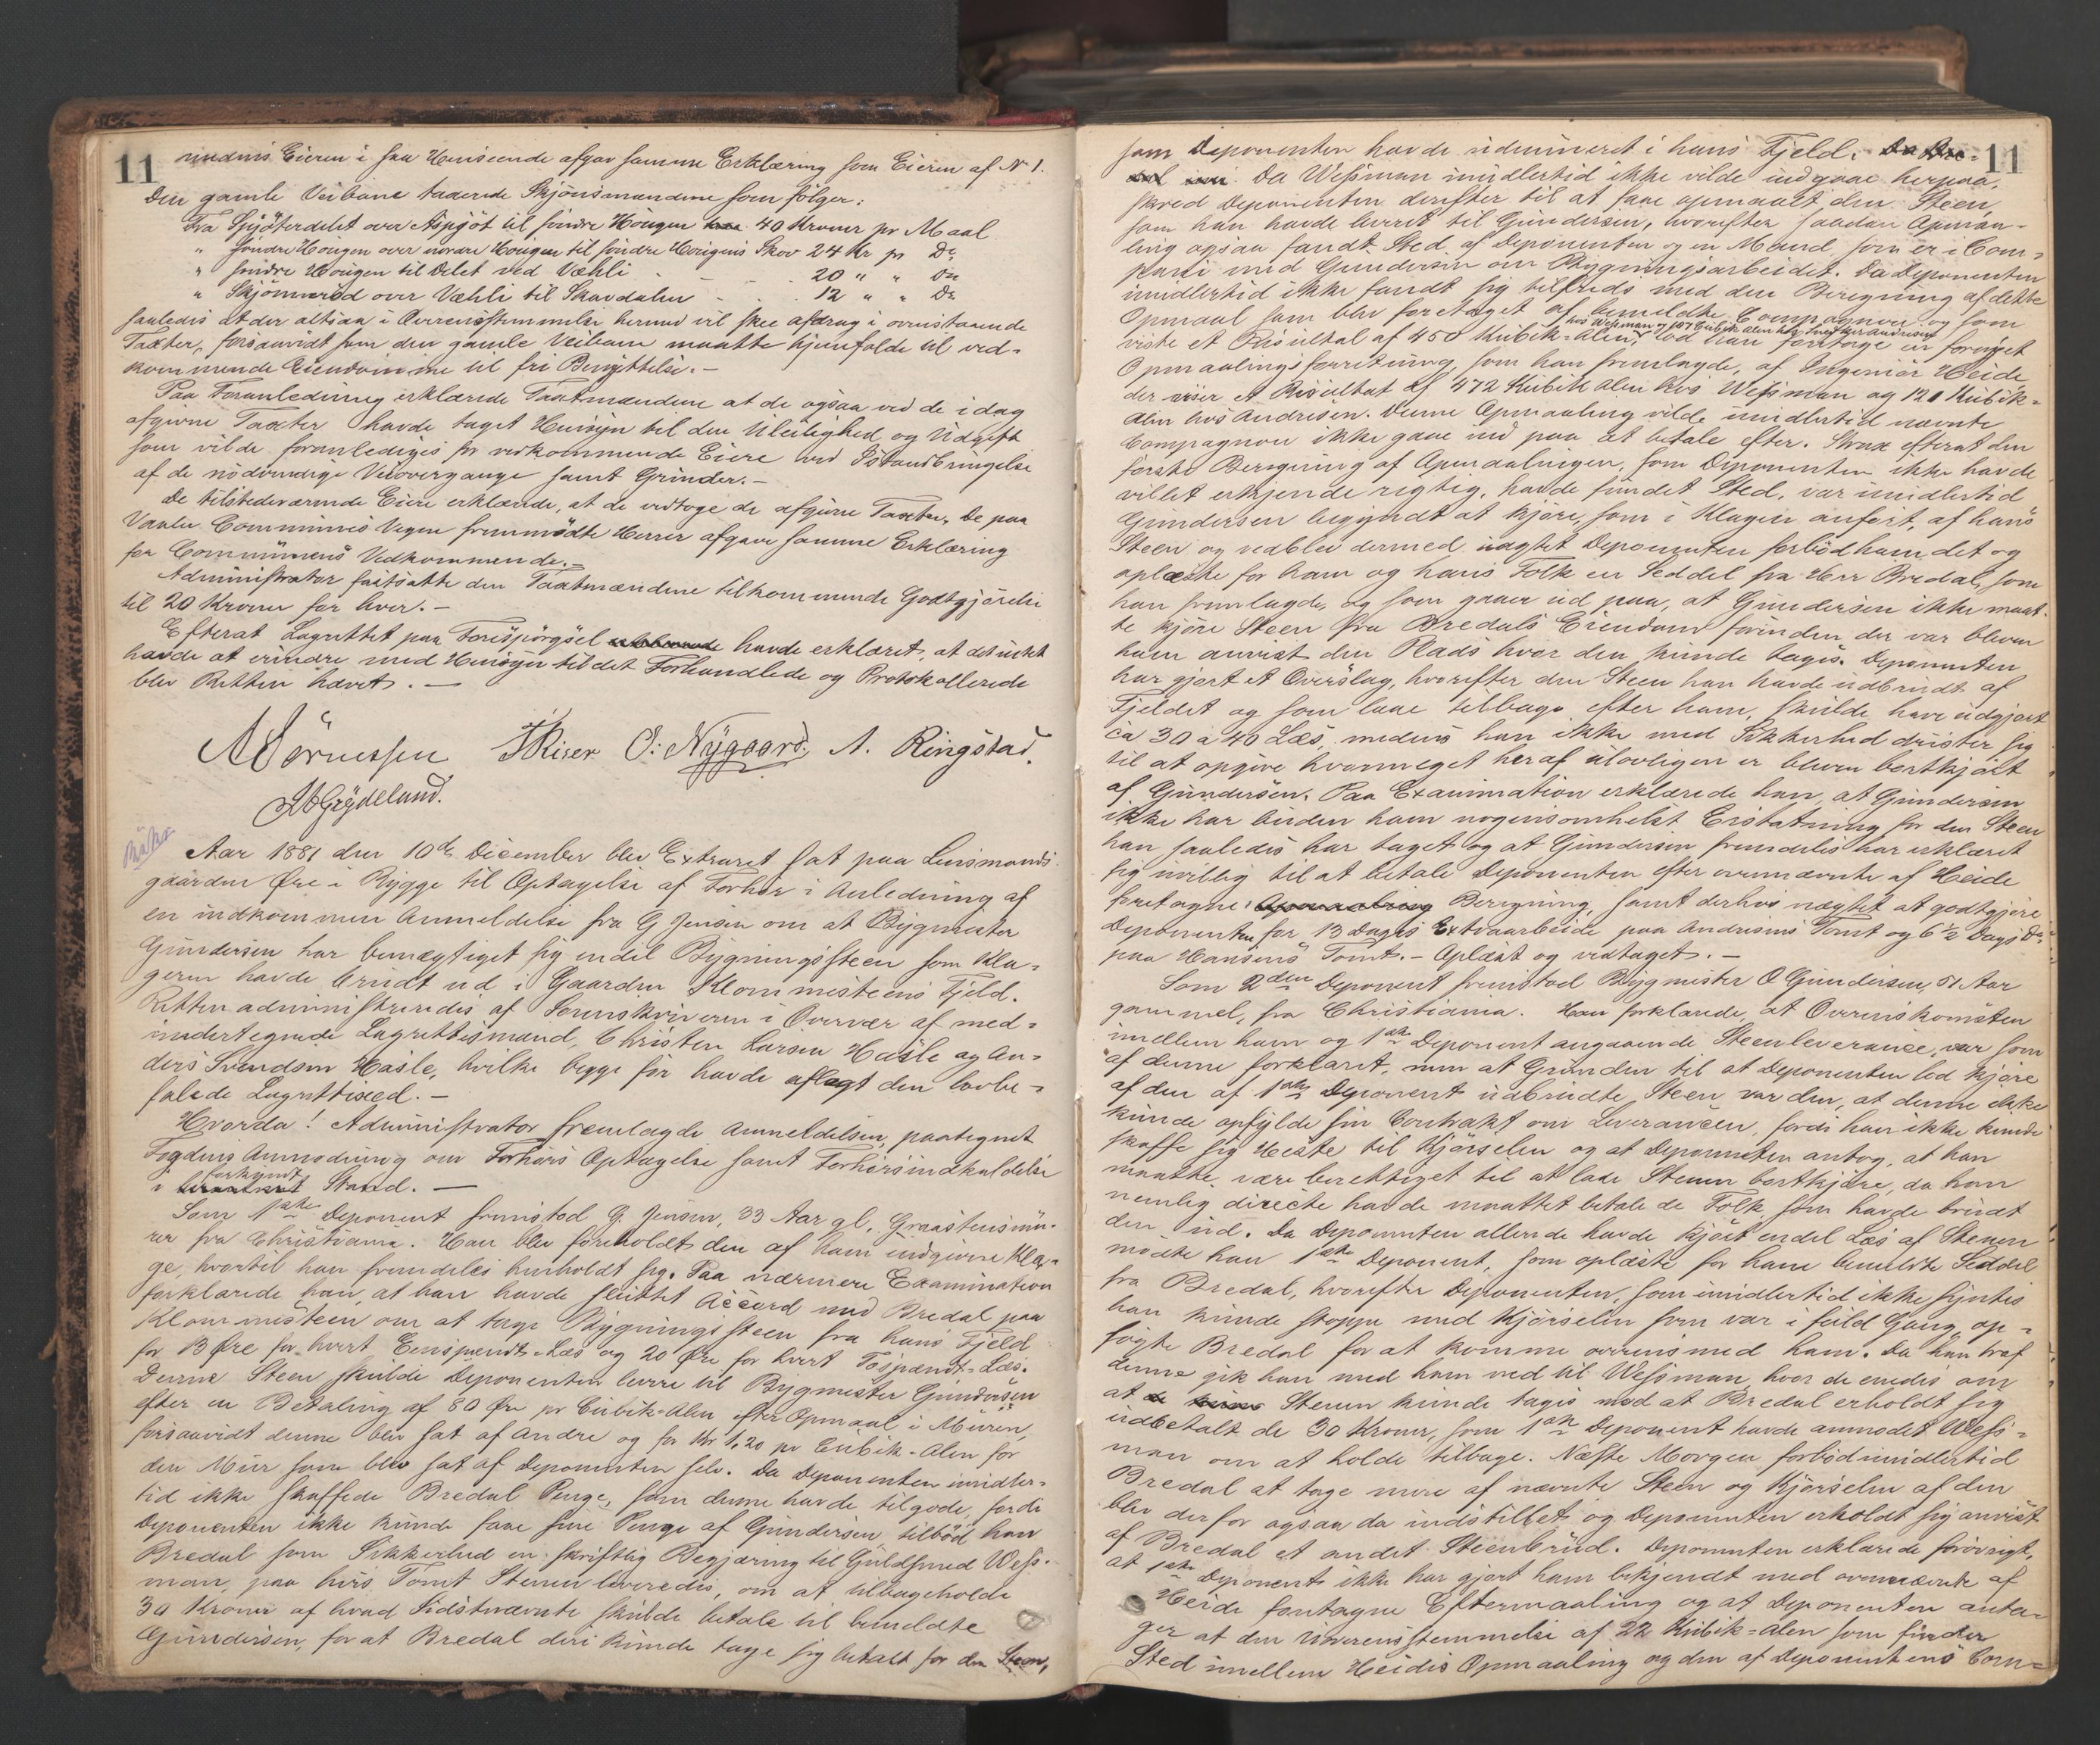 11
medens Eieren i saa Henseende afgav samme Erklæring som Eieren af N 1.
Den gamle Veibane taxerede Skjönsmændene som fölger:
Fra Sjöterdelet over Aspjöt til söndre Hougen 40 Kroner pr Maal
" söndre Hougen over nordre Hougen til söndre Hougens Skov 24 Kr pr Do
" söndre Hougen til Delet ved Væhli - - 20 " " Do
" Skjönnerød over Væhli til Skavdalen - - 12 " " Do
saaledes at der altsaa i Overensstemmelse hermed vil skee afdrag i ovenstaaende
Taxter, forsaavidt som den gamle Veibane maatte hjemfalde til ved-
kommende Eiendomme til fri Benyttelse.-
Paa Foranledning erklærede Taxtmændene at de ogsaa ved de i dag
afgivne Taxter havde taget Hensyn til den Uleilighed og Udgift
som vilde foranlediges for vedkommende Eiere ved Istandbringelse
af de nödvendige Veiovergange samt Grinder.-
De tilstedeværende Eiere erklærede, at de vedtoge de afgivne Taxter. De paa
Vaaler Communes Vegne fremmödte Herrer afgave samme Erklæring
for Communens Vedkommende.-
Administrator fastsatte den Taxtmændene tilkommende Godtgjörelse
til 20 Kroner for hver.-
Efterat Lagrettet paa Forespörgsel havde erklæret, at det intet
havde at erindre med Hensyn til det Forhandlede og Protokollerede
blev Retten hævet.-
A Sörnessen T Riser O: Nÿgaard. A. Ringstad.
Grÿdeland.
Aar 1881 den 10de December blev Extraret sat paa Lensmands-
gaarden Øre i Rygge til Optagelse af Forhör i Anledning af
en indkommen Anmeldelse fra G Jensen om at Bygmester
Gundersen har bemægtiget sig endel Bygningssteen som Kla-
geren havde brudt ud i Gaarden Klommesteens Fjeld.
Retten administreredes af Sorenskriveren i Overvær af med-
undertegnede Lagrettesmænd, Christen Larsen Hasle og An-
ders Svendsen Hasle, hvilke begge för havde aflagt den lovbe-
falede Lagretteseed.-
Hvorda! Administrator fremlagde Anmeldelsen, paategnet
Fogdens Anmodning om Forhörs Optagelse samt Forhörsindkaldelse
i forkyndt Stand.-
Som 1ste Deponent fremstod G. Jensen, 33 Aar gl. Graasteensmu-
rer fra Christiania. Han blev foreholdt den af ham indgivne Kla-
ge, hvortil han fremdeles henholdt sig. Paa nærmere Examination
forklarede han, at han havde sluttet Accord med Bredal paa
Klommesteen om at tage Bygningssteen fra hans Fjeld
for 13 Øre for hvert Eenspændt-Læs og 20 Øre for hvert Tospændt-Læs.
Denne Steen skulde Deponenten levere til Bygmester Gundersen
efter en Betaling af 80 Øre pr Cubik-Alen efter Opmaal i Muren,
forsaavidt denne blev sat af Andre og for Kr 1,20 pr Cubik-Alen for
den Mur som blev sat af Deponenten selv. Da Deponenten imidler-
tid ikke skaffede Bredal Penge, som denne havde tilgode, fordi
Deponenten ikke kunde faae sine Penge af Gundersen tilböd han
Bredal som Sikkerhed en skriftlig Begjæring til Guldsmed Wess-
man, paa hvis Tomt Stenen leveredes, om at tilbageholde
30 Kroner af hvad Sidstnævnte skulde betale til bemeldte
Gundersen, for at Bredal deri kunde tage sig betalt for den Steen,
11
som Deponenten havde udmineret i hans Fjeld.
Da Wessman imidlertid ikke vilde indgaae herpaa,
skred Deponenten derefter til at faae opmaalt den Steen
som han havde leveret til Gundersen, hvorefter saadan Opmaa-
ling ogsaa fandt Sted af Deponenten og en Mand, som er i Com-
pani med Gundersen om Bygningsarbeidet. Da Deponenten
imidlertid ikke fandt sig tilfreds med den Beregning af dette
Opmaal som blev foretaget af bemeldte Compagnon og som
viste et Resultat af 450 Kubik-Alen hos Wessman og 107 Cubik Alen hos Andresen, lod han foretage en fornyet
Opmaalingsforretning, som han fremlagde, af Ingeniör Heide
der viser et Resultat af 472 Kubik Alen hos Wessman og 120 Kubik-
Alen hos Andresen. Denne Opmaaling vilde imidlertid nævnte
Compagnon ikke gaae ind paa at betale efter. Strax efterat den
förste Beregning af Opmaalingen, som Deponenten ikke havde
villet erkjende rigtig, havde fundet Sted, var imidlertid
Gundersen begyndt at kjöre, som i Klagen anfört, af hans
Steen og vedblev dermed uagtet Deponenten forböd ham det og
oplæste for ham og hans Folk en Seddel fra Herr Bredal, som
han fremlagde, og som gaaer ud paa, at Gundersen ikke maat-
te kjöre Steen fra Bredals Eiendom forinden der var bleven
ham anvist den Plads hvor den kunde tages. Deponenten
har gjort et Overslag, hvorefter den Steen han havde udbrudt af
Fjeldet og som laae tilbage efter ham, skulde have udgjort
ca 30 a 40 Læs, medens han ikke med Sikkerhed drister sig
til at opgive hvormeget heraf ulovligen er bleven bortkjört
af Gundersen. Paa Examination erklærede han, at Gundersen
ikke har buden ham nogensomhelst Erstatning for den Steen
han saaledes har taget og at Gundersen fremdeles har erklæret
sig uvillig til at betale Deponenten efter ovennævnte af Heide
foretagne Beregning, samt derhos nægtet at godtgjöre
Deponenten for 13 Dages Extraarbeide paa Andresens Tomt og 6 1/2 Dags Do
paa Hansens Tomt.- Oplæst og vedtaget.-
Som 2den Deponent fremstod Bygmester O Gundersen, 51 Aar
gammel, fra Christiania. Han forklarede, at Overenskomsten
mellem ham og 1ste Deponent angaaende Steenleverance, var som
af denne forklaret, men at Grunden til at Deponenten lod kjöre
af den af 1ste Deponent udbrudte Steen var den, at denne ikke
kunde opfylde sin Contrakt om Leverancen, fordi han ikke kunde
skaffe sig Heste til Kjörselen og at Deponenten antog, at han
maatte være berettiget til at lade Stenen bortkjöre, da han
nemlig directe havde maattet betale de Folk, som havde brudt
den ud. Da Deponenten allerede havde kjört endel Læs af Stenen
mödte han 1ste Deponent, som oplæste for ham bemeldte Seddel
fra Bredal, hvorefter Deponenten, som imidlertid ikke syntes
han kunde stoppe med Kjörselen som var i fuld Gang op-
sögte Bredal for at komme overens med ham. Da han traf
denne gik han med ham ned til Wessman, hvor de enedes om
at Stenen kunde tages mod at Bredal erholdt sig
udbetalt de 30 Kroner, som 1ste Deponent havde anmodet Wess-
man om at holde tilbage. Næste Morgen forböd imidlertid
Bredal at tage mere af nævnte Steen og Kjörselen af den
blev derfor ogsaa da indstillet og Deponenten erholdt sig anvist
af Bredal et andet Steenbrud. Deponenten erklærede forövrigt,
at 1ste Deponent ikke har gjort ham bekjendt med ovennævnte af
Heide foretagne Eftermaaling og at Deponenten anta-
ger at den Uoverensstemmelse af 22 Kubik-Alen som finder
Sted mellem Heides Opmaaling og den af Deponentens Com-